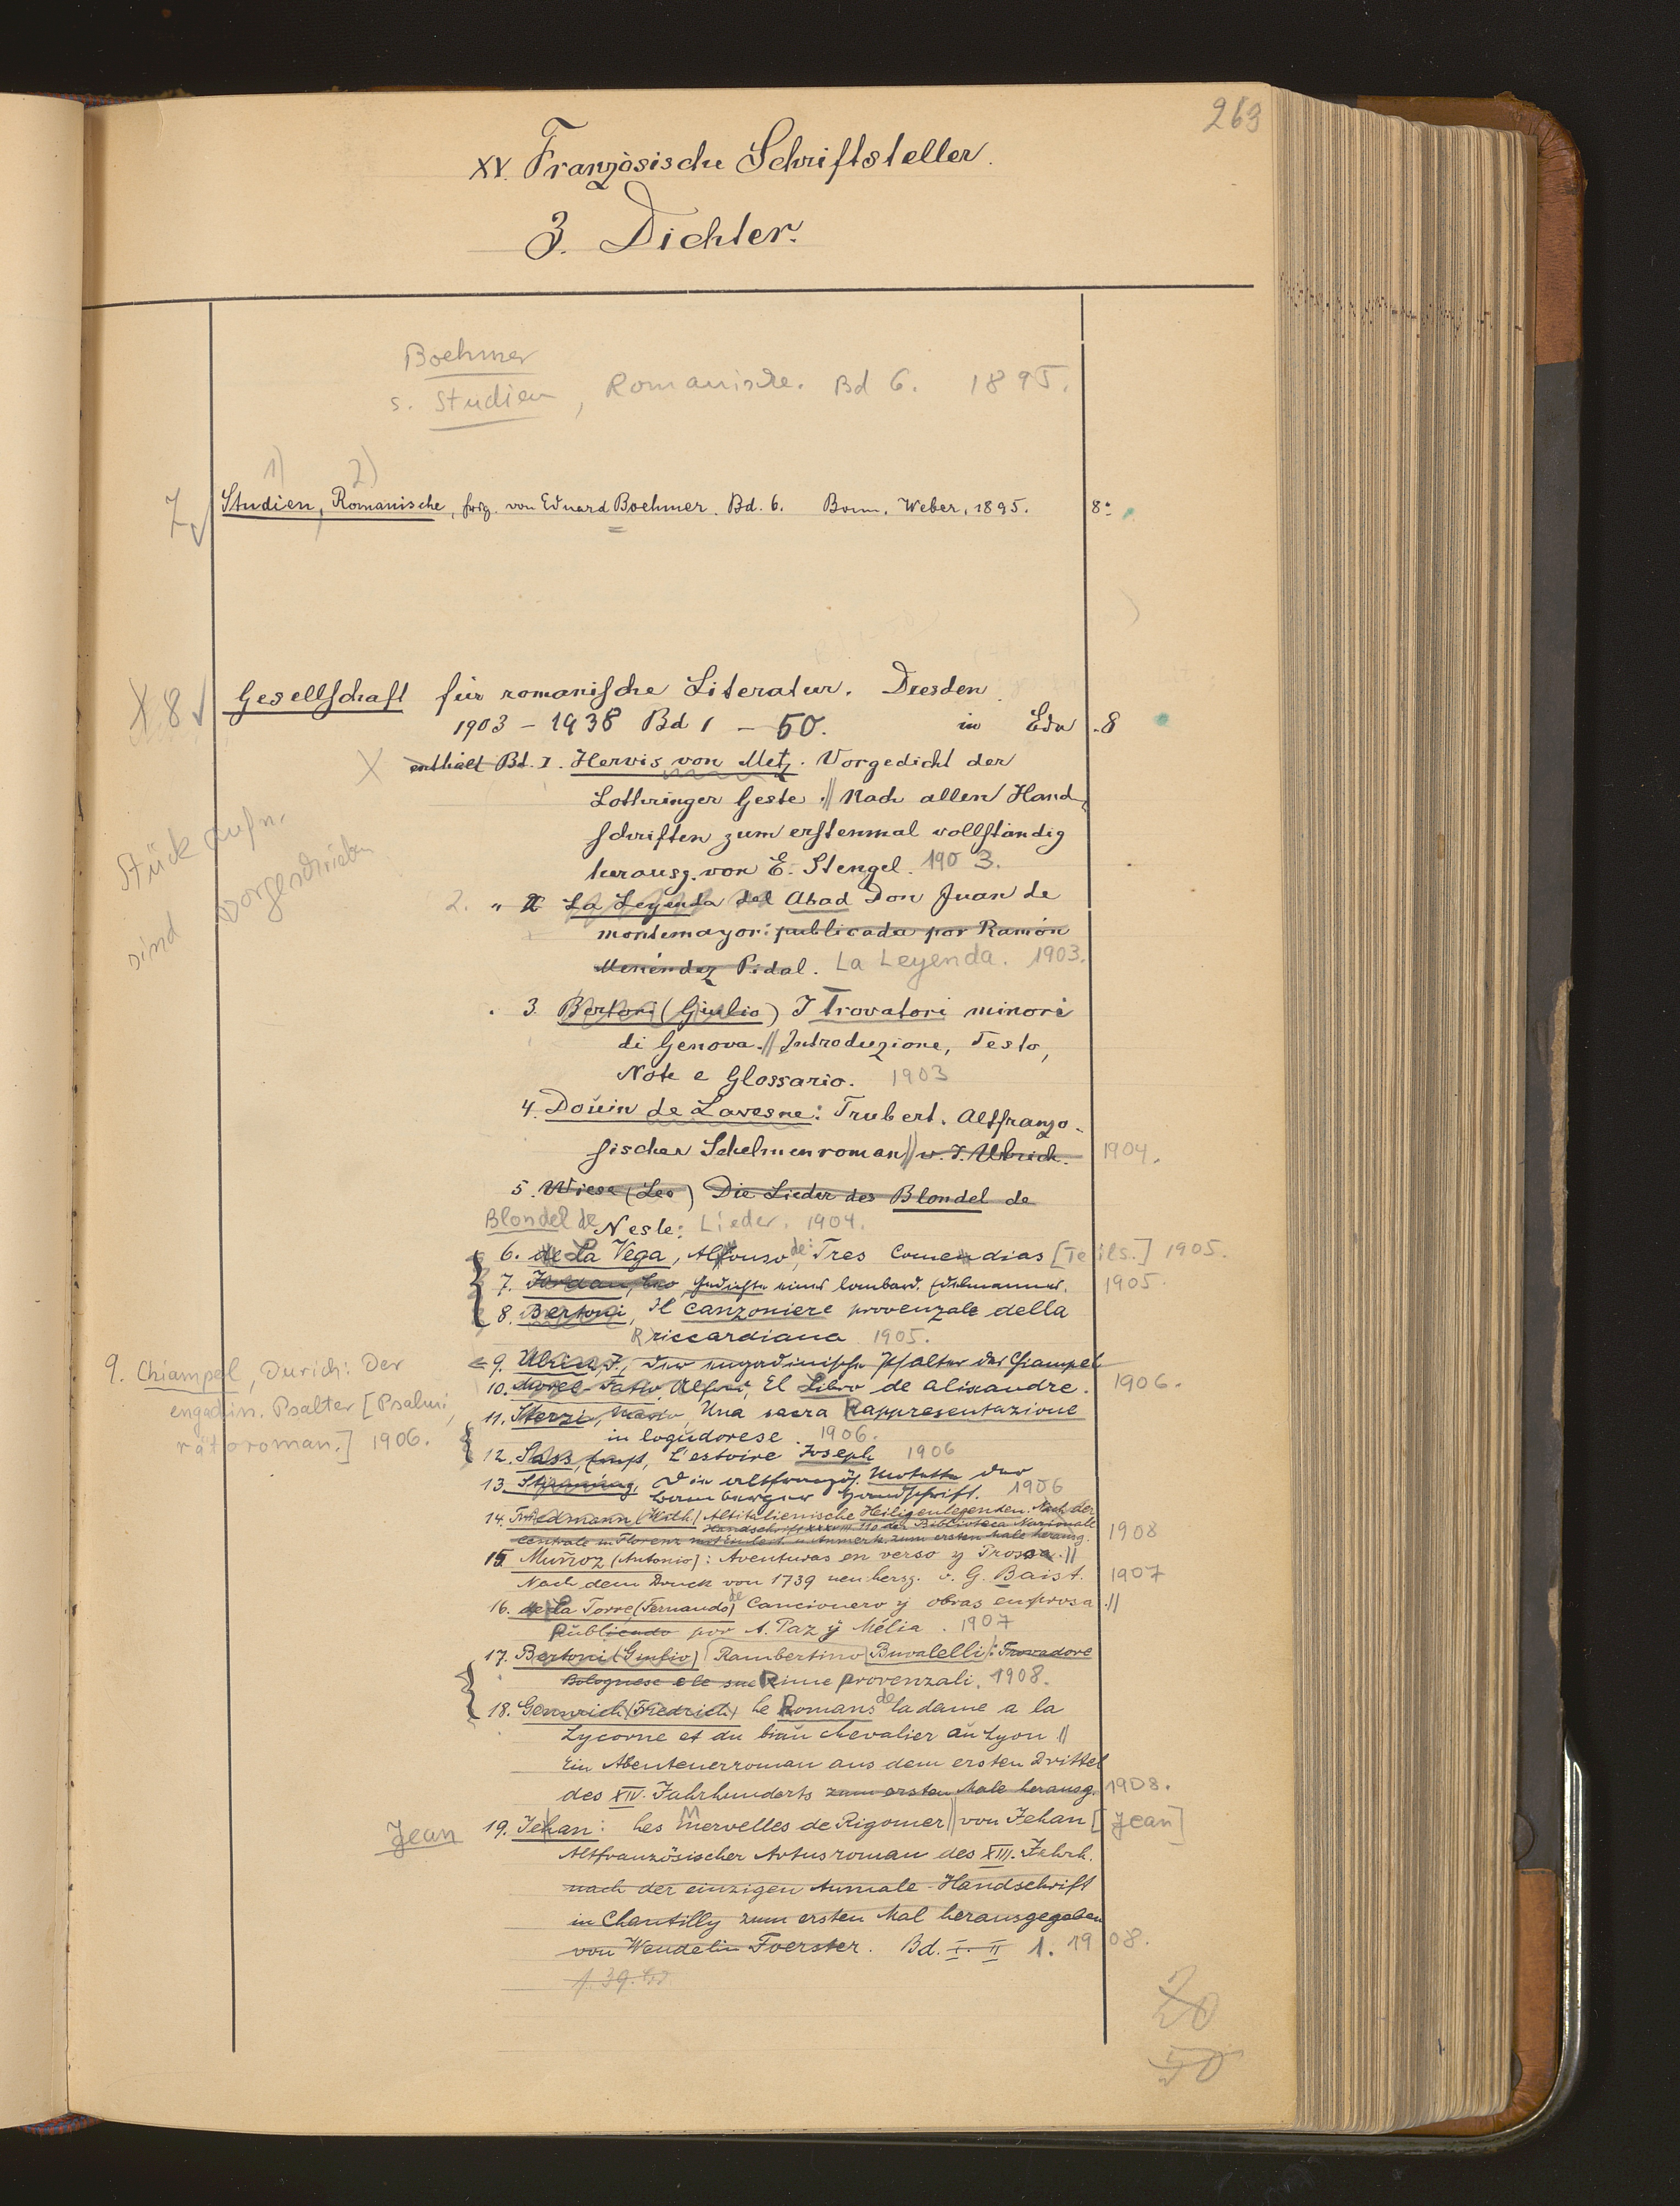 263
XV. Französische Schriftsteller.
3. Dichter.
Boehmer
s. Studien, Romanische. Bd 6. 1895.
1) 2)
7 Studien, Romanische, hrsg. von Eduard Boehmer. Bd. 6. Bonn, Weber, 1895. 8°
X 8 Gesellschaft für romanische Literatur. Dresden
1903 - 1938 Bd 1 - 50. in Edu .8
X enthält Bd. I. Hervis von Metz. Vorgedicht der
Lothringer Geste .// Nach allen Hand-
schriften zum erstenmal vollständig
herausg. von E. Stengel. 1903.
Stück aufn.
sind vorgeschrieben
2. " II La Leyenda del Abad Don Juan de
montemayor: publicada por Ramón
Menéndez Pidal. La Leyenda. 1903.
3 Bertoni (Giulio) I Trovatori minori
di Genova.// Introduzione, Testo,
Note e Glossario. 1903
4. Doüin de Lavesne: Trubert. Altfranzö-
sischer Schelmenroman // v. J. Ulrich. 1904.
5. Wiese (Leo) Die Lieder des Blondel de
Blondel de Nesle: Lieder. 1904.
6. de La Vega, Alfonso de: Tres Comendias [Teils.] 1905.
7. Jordan, Leo, Gedichte eines lombard. Edelmannes. 1905.
8. Bertoni, Il canzoniere provenzale della
Riccardiana 1905.
9. Ulrich, J., Der engadinische Psalter des Chiampel
9. Chiampel, Durich: Der
engadin. Psalter [Psalmi,
rätoroman.] 1906.
10. Morel-Fatio, Alfred, El Libro de Alixandre. 1906.
11. Sterzi, Mario, Una sacra Rappresentazione
in logudorese. 1906.
12. Sass, Ernst, L'estoire Joseph 1906
13. Stimming, Die altfranzös. Motette der
Bamberger Handschrift. 1906
14. Friedmann (Wilh.) Altitalienische Heiligenlegenden. Nach der
Handschrift XXXVIII 110 der Biblioteca Nazionale
Centrale in Florenz mit Einleit. u. Anmerk. zum ersten Male herausg. 1908
15 Muñoz (Antonio): Aventuras en verso y Prosa.//
Nach dem Druck von 1739 neu hersg. v. G. Baist. 1907
16. de la Torre (Fernando) de Cancionero y obras en prosa.//
Publicado por A. Paz ÿ Mélia. 1907
17. Bertoni (Giulio) Rambertino Buvalelli: Trovadore
Bolognese e le sue Rime provenzali. 1908.
18. Gennrich (Friedrich) Le Romans de la dame a la
Lycorne et du biau chevalier au Lyon //
Ein Abenteuerroman aus dem ersten Drittel
des XIV. Jahrhunderts zum ersten Male herausg. 1908.
Jean 19. Jehan: Les Mervelles de Rigomer // von Jehan [Jean]
Altfranzösischer Artusroman des XIII. Jahrh.
nach der einzigen Aumale-Handschrift
in Chantilly zum ersten Mal herausgegeben
von Wendelin Foerster. Bd. I. II 1. 1908.
20
50